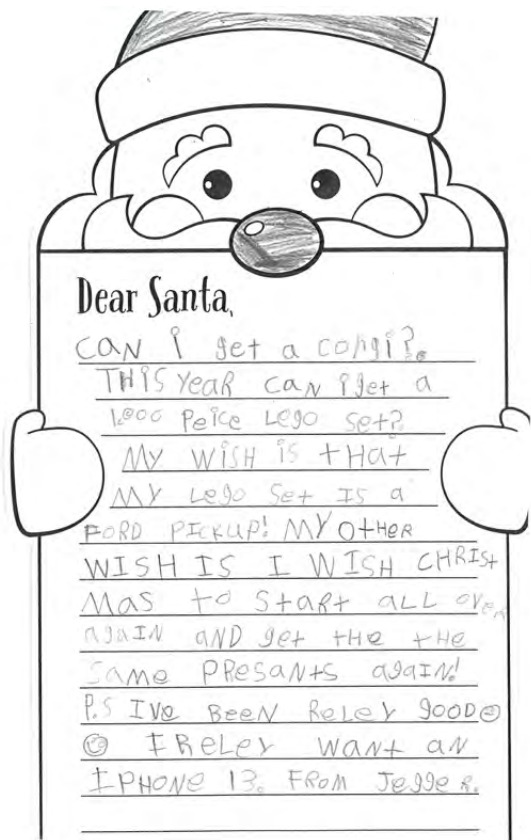 Dear Santa,
CAN i get a corgi?.
THiS YeaR CaN i get a
1,000 Peice LEgO Set?
MY WiSH iS tHat
MY Lego Set IS a
FORD PICKUP! MY OtHER
WISH IS I WISH CHRISt
MaS to StaRt aLL OVeR
agaIN aND get tHe tHe
Same PResaNtS agaIN!
P.S IVe BeeN ReLeY gOOD☺
☺ I ReLeY WaNt aN
IPHONe 13. FROM Jegge R.